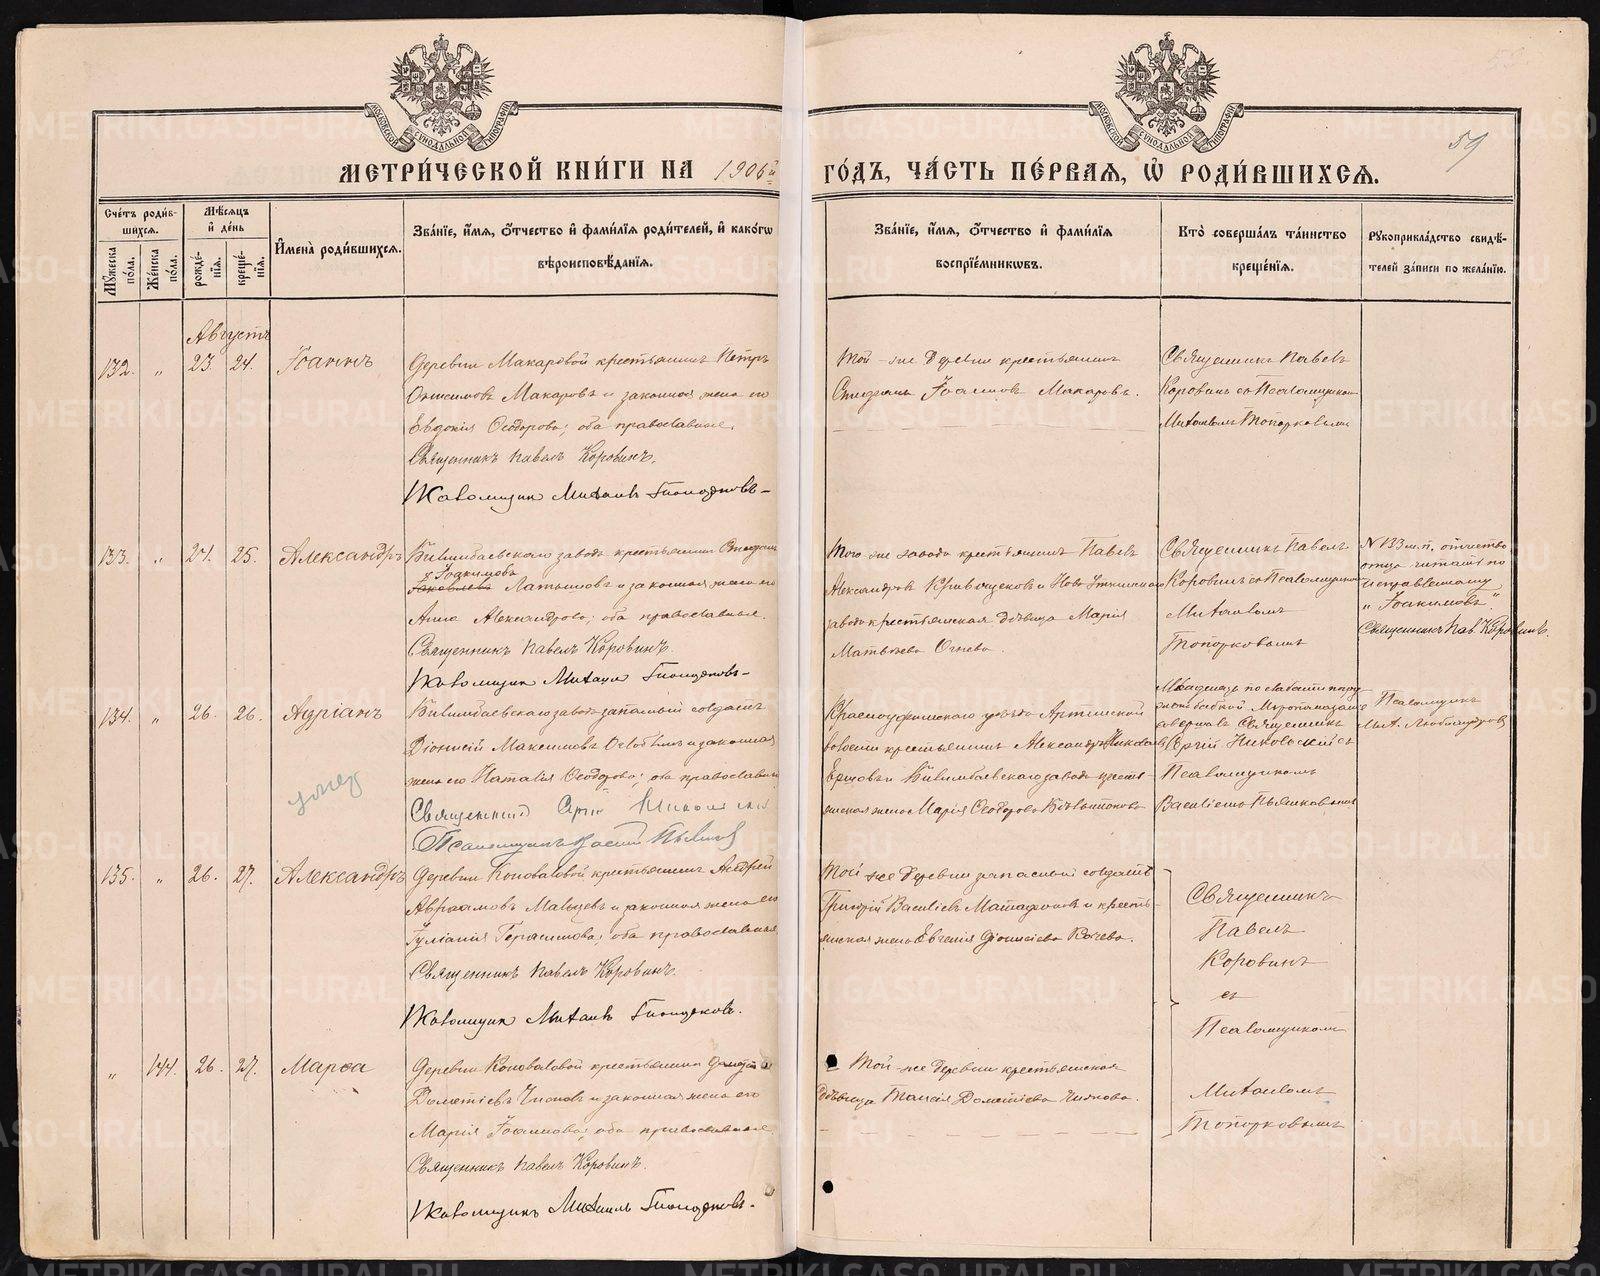 МОСКОВСКОЙ СѴНОДАЛЬНОЙ ТИПОГРАФІИ
МОСКОВСКОЙ СѴНОДАЛЬНОЙ ТИПОГРАФІИ
59
МЕТРИ́ЧЕСКОЙ КНИ́ГИ НА 1906й ГО́ДЪ, ЧА́СТЬ ПЕ́РВАѦ, Ѡ РОДИ́ВШИХСѦ.
Сче́тъ роди́вшихсѧ.
Мꙋжеска по́ла.
Же́нска по́ла.
Мѣсѧцъ и де́нь
рожде́нїѧ.
креще́нїѧ.
И҆мена̀ роди́вшихсѧ.
Зва́нїе, и҆мѧ, ѻ҆тчество и҆ фами́лїѧ роди́телей, и҆ како́гѡ вѣроисповѣ́данїѧ.
Зва́нїе, и҆мѧ, ѻ҆тчество и҆ фами́лїѧ воспрїе́мникѡвъ.
Кто̀ соверша́лъ та́инство креще́нїѧ.
Рꙋкоприкла́дство свидѣ́телей за́писи по жела́нїю.
Августъ
132. „ 23. 24. Іоаннъ
Деревни Макаровой крестьянинъ Петръ
Онисимовъ Макаровъ и законная жена его
Евдокія Ѳеодорова; оба православные.
Священникъ Павелъ Коровинъ.
Псаломщикъ Михаилъ Топорковъ
Той-же деревни крестьянинъ
Стефанъ Іоанновъ Макаровъ.
Священникъ Павелъ
Коровинъ съ Псаломщикомъ
Михаиломъ Топорковымъ
133. „ 24. 25. Александръ
Билимбаевскаго завода крестьянинъ Стефанъ
Іоакимовъ
Яковлевъ Латыповъ и законная жена его
Анна Александрова; оба православные.
Священникъ Павелъ Коровинъ.
Псаломщикъ Михаилъ Топорковъ
Того-же завода крестьянинъ Павелъ
Александровъ Кривощековъ и Ново Уткинскаго
завода крестьянская дѣвица Марія
Матвѣева Огнева.
Священникъ Павелъ
Коровинъ съ Псаломщикомъ
Михаиломъ
Топорковымъ
№ 133 м. п. отчество
отца читать по
исправленному
„Іоакимовъ".
Священникъ Пав. Коровинъ.
134. „ 26. 26. Адріанъ
умер
Билимбаевскаго завода запасный солдатъ
Діонисій Максимовъ и законная
жена его Наталія Ѳеодорова; оба православные
Священникъ Сергій Никольскій
Псаломщикъ Василій
Красноуфимскаго уѣзда Артинской
волости крестьянинъ Александръ Николаевъ
и Билимбаевскаго завода кресть-
янская жена Марія Ѳеодорова
Младенца по слабости
Муропомазаніе
Священникъ
Сергій Никольскій съ
Псаломщикомъ
Василіемъ
Псаломщикъ
135. „ 26. 27. Александръ
Деревни Коноваловой крестьянинъ Андрей
Авраамовъ Мальцевъ и законная жена его
Іуліанія Герасимова; оба православные
Священникъ Павелъ Коровинъ.
Псаломщикъ Михаилъ Топорковъ.
Той же деревни запасный солдатъ
Григорій Василіевъ и кресть-
янская жена Евгенія Діонисіева
Священникъ
Павелъ
Коровинъ
съ
Псаломщикомъ
Михаиломъ
Топорковымъ
„ 144. 26. 27. Марѳа
Деревни Коноваловой крестьянинъ
Дометіевъ и законная жена его
Марія Іоаннова; оба православные.
Священникъ Павелъ Коровинъ.
Псаломщикъ Михаилъ Топорковъ.
Той-же деревни крестьянская
дѣвица Таисія Дометіева
METRIKI.GASO-URAL.RU